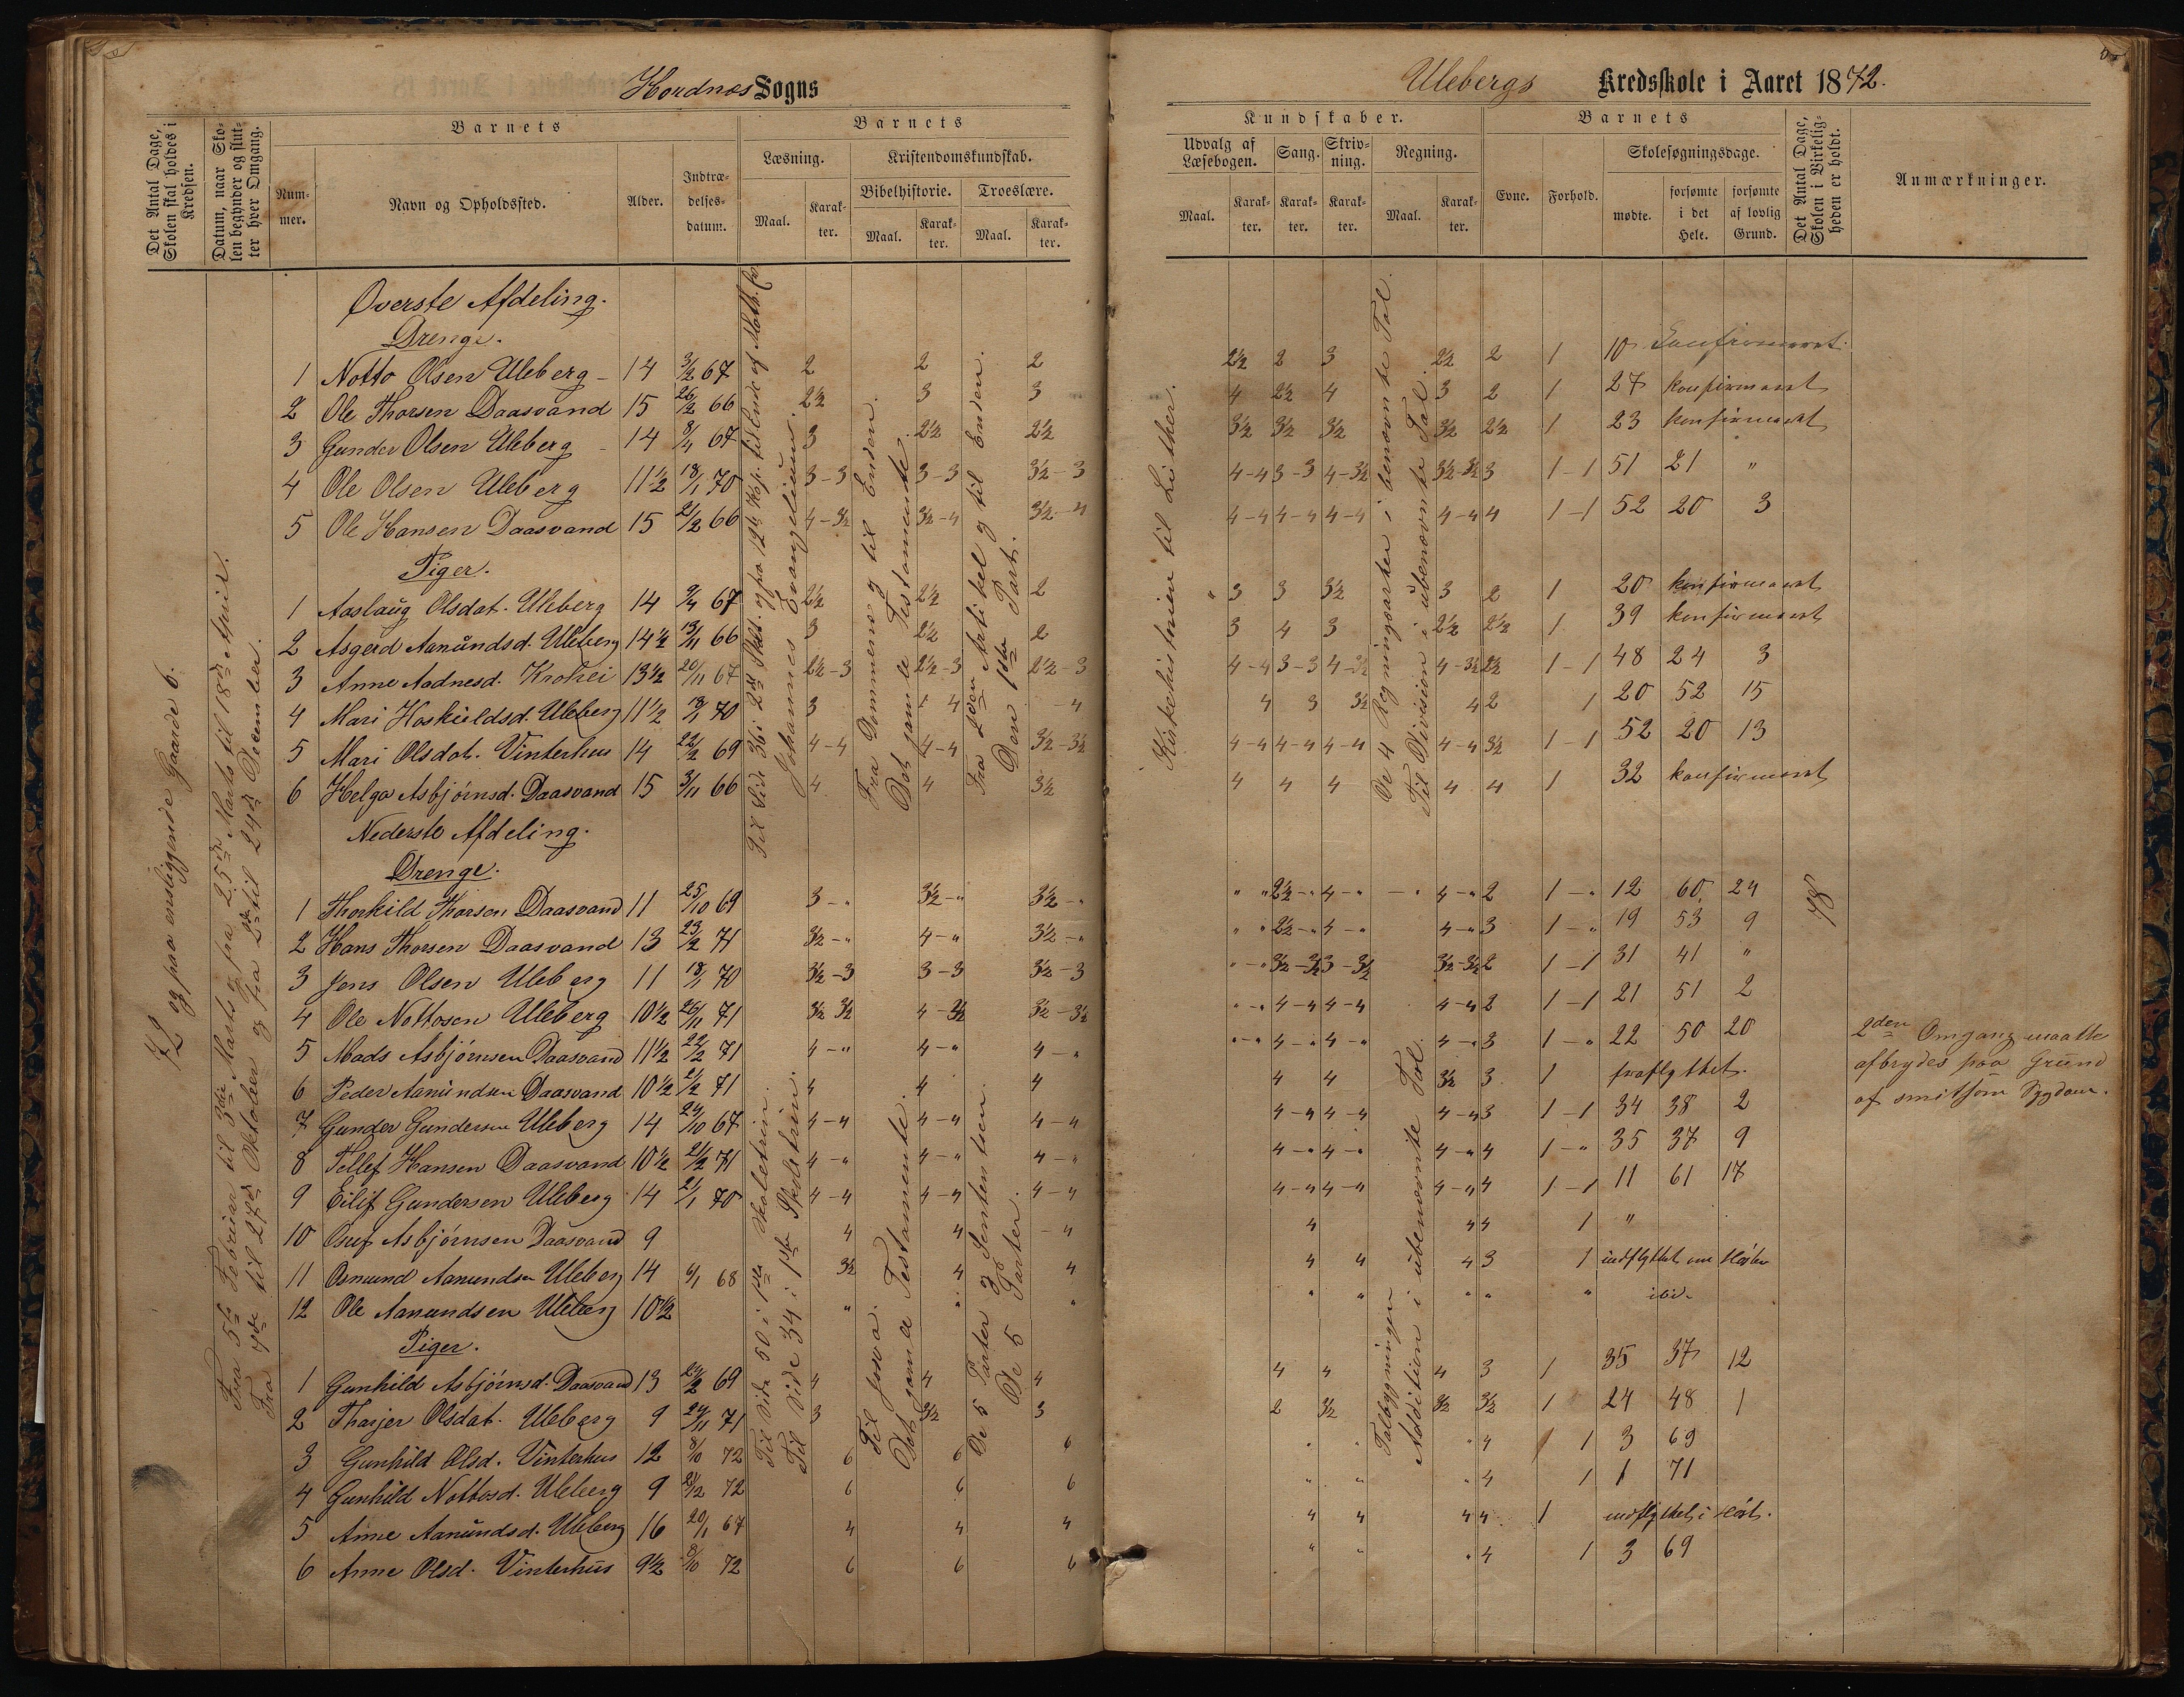 Hordnes Sogns
Ulebergs Kredsskole i Aaret 1872.
Det Antal Dage, Skolen skal holdes i Kredsen.
Datum, naar Skolen begynder og slutter hver Omgang.
Barnets
Nummer.
Navn og Opholdssted.
Alder.
Indtrædelsesdatum.
Barnets
Læsning.
Kristendomskundskab.
Bibelhistorie.
Troeslære.
Maal.
Karakter.
Maal.
Karakter.
Maal.
Karakter.
Kundskaber.
Udvalg af Læsebogen.
Sang.
Skrivning.
Regning.
Maal.
Karakter.
Karakter.
Karakter.
Maal.
Karakter.
Barnets
Evne.
Forhold.
Skolesøgningsdage.
mødte.
forsømte i det Hele.
forsømte af lovlig Grund.
Det Antal Dage, Skolen i Virkeligheden er holdt.
Anmærkninger.
72 og paa ensliggende Gaarde 6.
Fra 5te Februar til 3die Marts og fra 25de Marts til 18de April.
Fra 9de til 27de Oktober og fra 2den til 24de December.
Øverste Afdeling.
Drenge.
1 Notto Olsen Uleberg 14 3/2 67 2 2 2 2½ 2 3 2½ 2 1 10 Konfirmeret.
2 Ole Thorsen Daasvand 15 26/2 66 2½ 3 3 4 2½ 4 3 2 1 27 konfirmeret
3 Gunder Olsen Uleberg 14 8/4 67 3 2½ 2½ 3½ 3½ 3½ 3½ 2½ 1 23 konfirmeret
4 Ole Olsen Uleberg 11½ 18/1 70 3-3 3-3 3½-3 4-4 3-3 4-3½ 3½-3½ 3 1-1 51 21 "
5 Ole Hansen Daasvand 15 21/2 66 4-3½ 3½-4 3½-4 4-4 4-4 4-4 4-4 4 1-1 52 20 3
Piger.
1 Aaslaug Olsdat. Uleberg 14 9/4 67 2½ 2½ 2 3 3 3½ 3 2 1 20 konfirmeret
2 Asgerd Aanundsd. Uleberg 14½ 13/11 66 3 2½ 2 3 4 3 2½ 2½ 1 39 konfirmeret
3 Anne Aadnesd. Krohei 13½ 20/11 67 2½-3 2½-3 2½-3 4-4 3-3 4-3½ 4-3½ 2½ 1-1 48 24 3
4 Mari Hoskieldsd. Uleberg 11½ 18/1 70 3 4 4 4 3 3½ 4 2 1 20 52 15
5 Mari Olsdat. Vinterhus 14 22/2 69 4-4 4-4 3½-3½ 4-4 4-4 4-4 4-4 3½ 1-1 52 20 13
6 Helga Asbjørnsd. Daasvand 15 3/11 66 4 4 3½ 4 4 4 4 4 1 32 konfirmeret
Johannes Evangelium.
Fra Dommerne og til Enden.
Det gamle Testamente.
Fra 2den Artikel og til Enden.
Den 1ste Part.
Kirkehistorien til Luther.
De 4 Regningsarter i benævnte Tal.
Til Division i ubenævnte Tal.
Nederste Afdeling.
Drenge.
1 Thorkild Thorsen Daasvand 11 25/10 69 3-" 3½-" 3½-" " " 2½-" 4-" 4-" 2 1-" 12 60 24
2 Hans Thorsen Daasvand 13 23/2 71 3½-" 4-" 3½-" " " 2½-" 4-" 4-" 3 1-" 19 53 9
3 Jens Olsen Uleberg 11 18/1 70 3½-3 3-3 3½-3 "-" 3½-3½ 3-3½ 3½-3½ 2 1-1 31 41 "
4 Ole Nottosen Uleberg 10½ 26/11 71 3½ 3½ 4-3½ 3½-3½ "-" 4-4 4-4 4-4 2 1-1 21 51 2
5 Mads Asbjørnsen Daasvand 11½ 22/2 71 4-" 4-" 4-" "-" 4-" 4-" 4-" 3 1-" 22 50 20
6 Peder Aanundsen Daasvand 10½ 21/2 71 4 4 4 4 4 3½ 3 1 fraflyttet.
7 Gunder Gundersen Uleberg 14 24/10 67 4-4 4-4 4-4 4-4 4-4 4-4 3 1-1 34 38 2
8 Tellef Hansen Daasvand 10½ 21/2 71 4-" 4-" 4-" 4-" 4-" 4-" 4 1-" 35 37 9
9 Eilif Gundersen Uleberg 14 21/1 70 4-4 4-4 4-4 4-4 4-4 4-4 4 1-1 11 61 17
10 Asbjørnsen Daasvand 9 4 4 4 4 4 4 1 "
11 Osmund Aanundsen Uleberg 14 6/1 68 3½ 4 4 4 4 4 3 1 indflyttet om Høsten
12 Ole Aanundsen Uleberg 10½ " " " " " " " " ibi.
Piger.
1 Gunhild Asbjørnsd. Daasvand 13 24/2 69 4 4 4 4 4 4 3 1 35 37 12
2 Tharjer Olsdat. Uleberg 9 24/11 71 3 3½ 3 2 3½ 3½ 3½ 1 24 48 1
3 Gunhild Olsd. Vinterhus 12 8/10 72 6 6 6 " " " 4 1 3 69
4 Gunhild Nottosd. Uleberg 9 21/12 72 6 6 6 " " " 4 1 1 71
5 Anne Aanundsd. Uleberg 16 20/1 67 4 4 4 4 4 4 4 1 indflyttet i Høst.
6 Anne Olsd. Vinterhus 9½ 8/10 72 6 6 6 " " " 4 1 3 69
Til Side 50 i 1ste Skoletrin.
Til Side 34 i 1ste Skoletrin.
Til Josva.
Det gamle Testamente.
De 5 Parter og Sententsen.
De 5 Parter.
Talbygningen
Addition i ubenævnte Tal.
78
2den Omgang maatte
afbrydes paa Grund
af smitsom Sygdom.